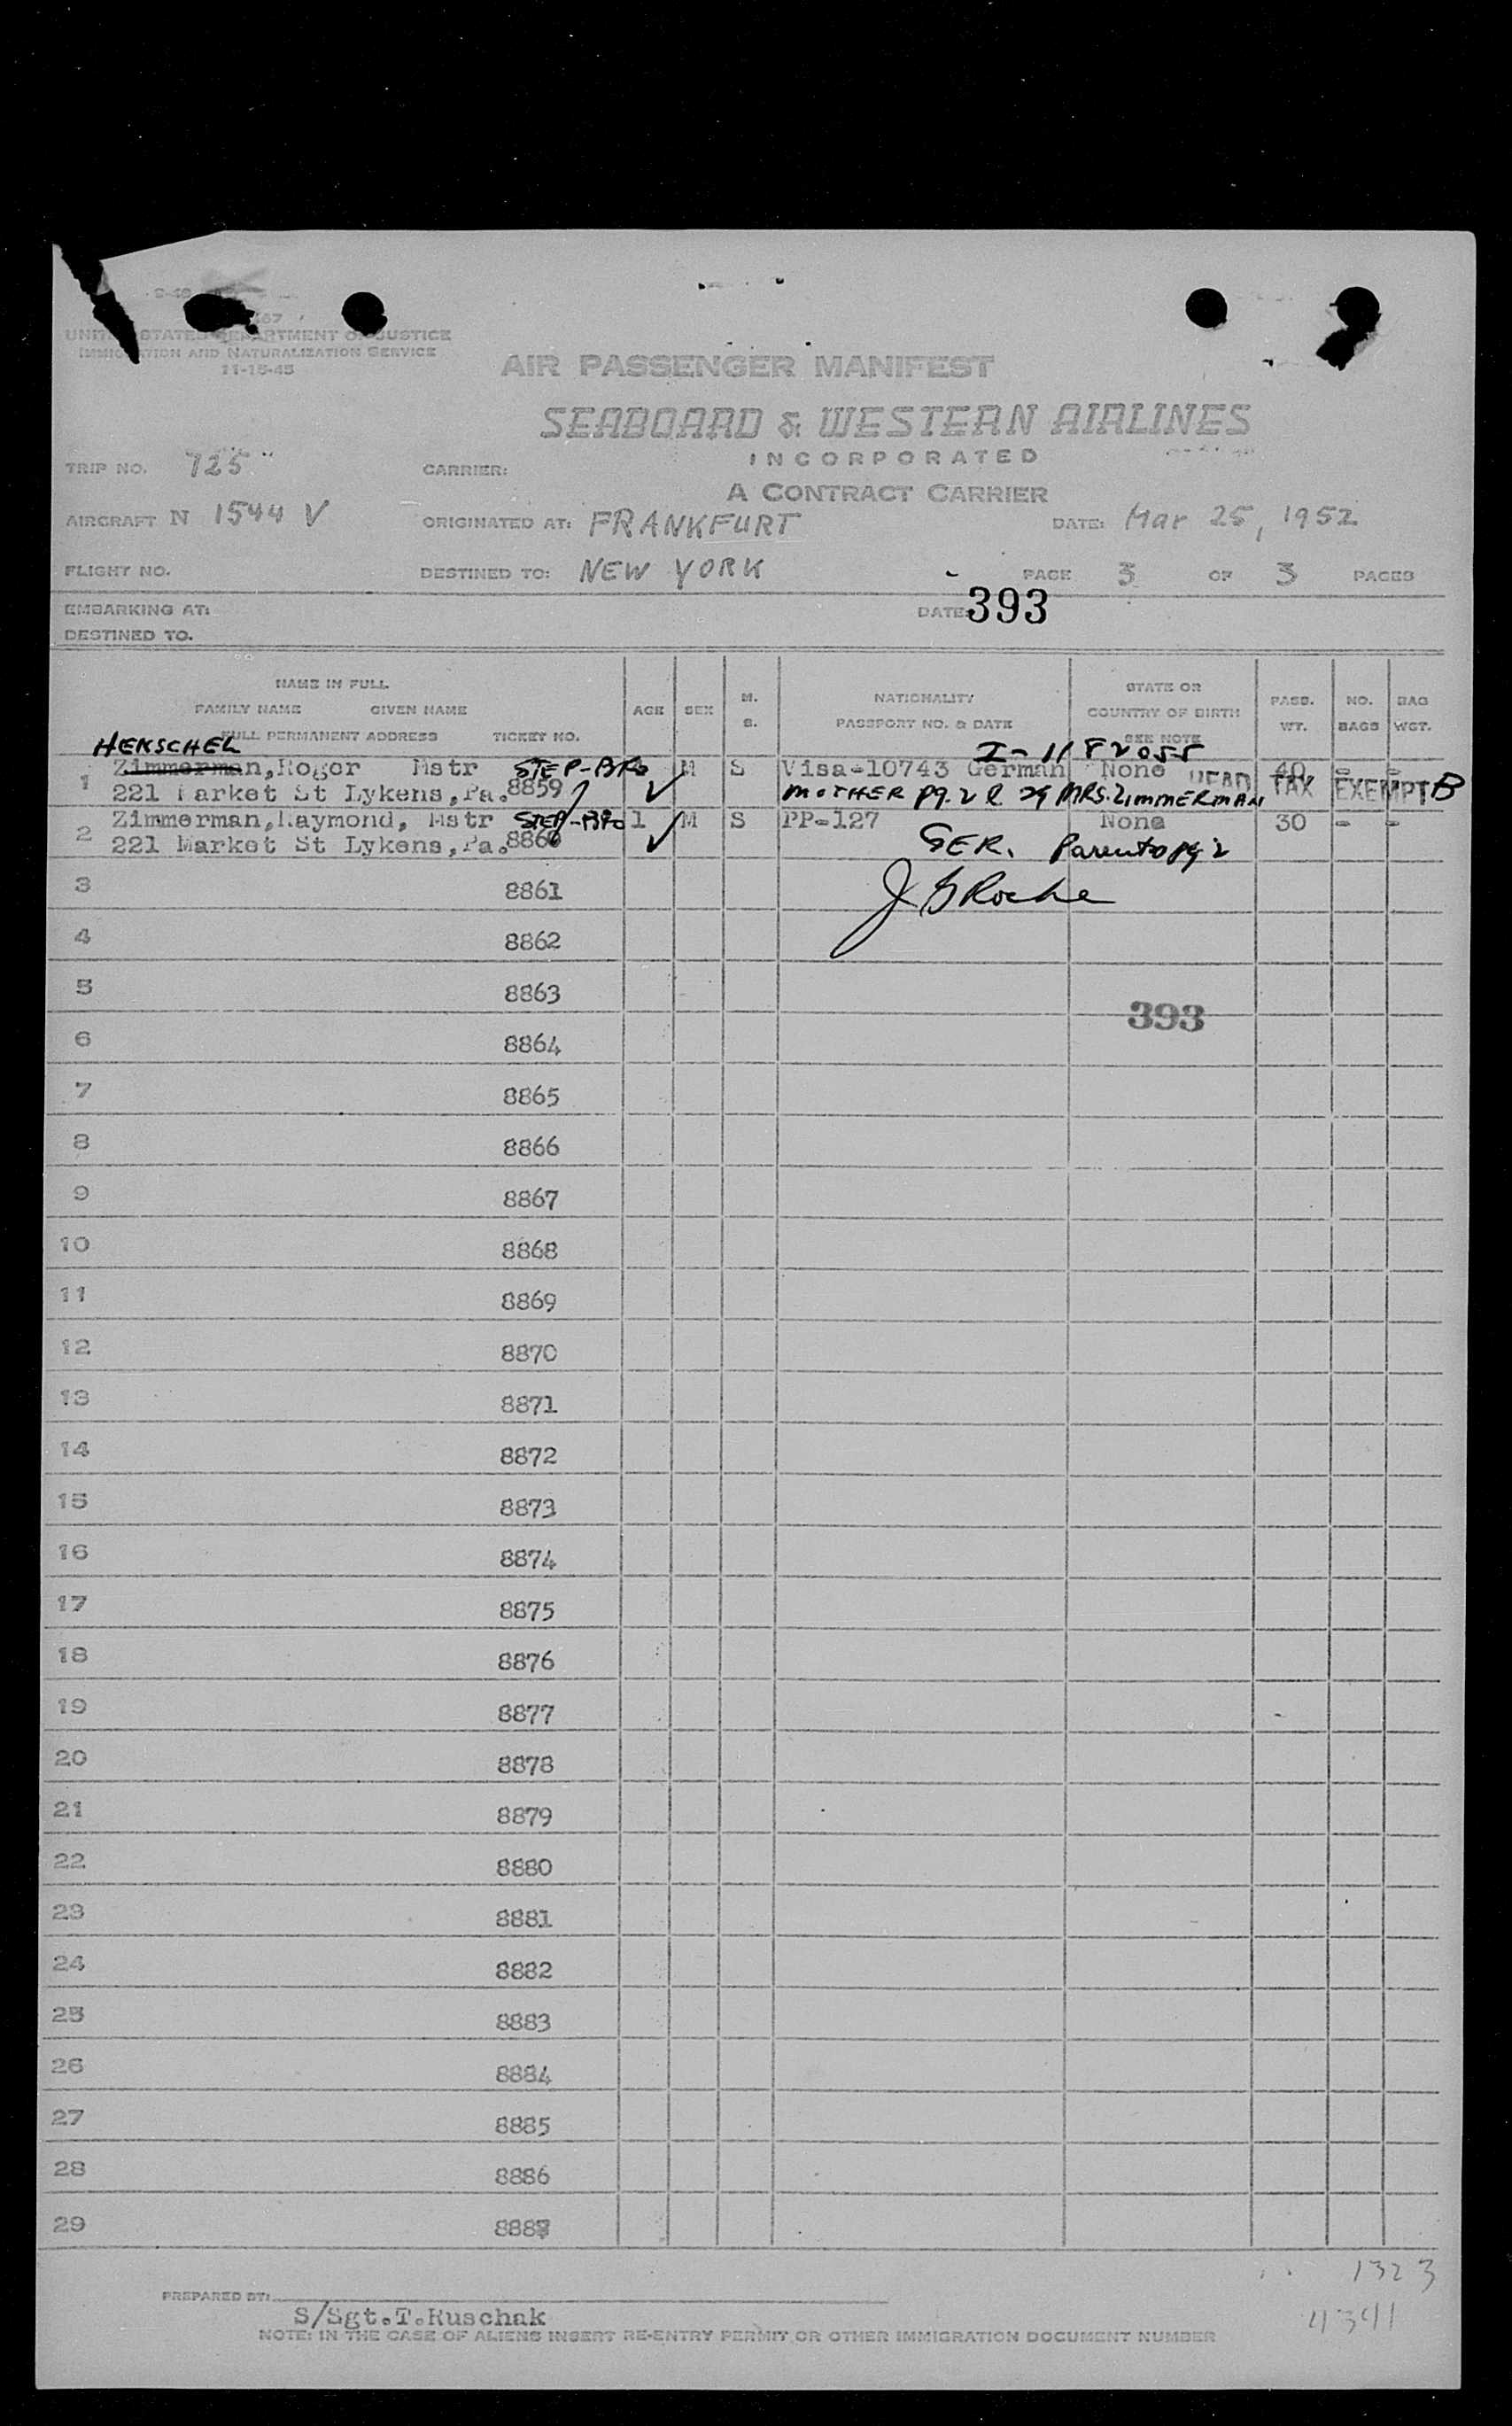 UNITED STATES DEPARTMENT OF JUSTICE
IMMIGRATION AND NATURALIZATION SERVICE
11-15-45
AIR PASSENGER MANIFEST
SEABOARD & WESTERN AIRLINES
INCORPORATED
A CONTRACT CARRIER
TRIP NO. 725 CARRIER:
AIRCRAFT N 1544 V ORIGINATED AT: FRANKFURT DATE: Mar 25, 1952
FLIGHT NO. DESTINED TO: NEW YORK PAGE 3 OF 3 PAGES
EMBARKING AT: DATE: 393
DESTINED TO.
NAME IN FULL
FAMILY NAME GIVEN NAME
FULL PERMANENT ADDRESS TICKET NO.
AGE SEX M. S.
NATIONALITY
PASSPORT NO. & DATE
STATE OR
COUNTRY OF BIRTH
SEE NOTE
PASS. WT.
NO. BAGS
BAG WGT.
HERSCHEL I-1182055
1 Zimmerman, Roger Mstr STEP-BRO M S Visa-10743 German None 40 - -
221 Market St Lykens, Pa. 8859 MOTHER pg. 2 l 29 MRS. ZIMMERMAN HEAD TAX EXEMPT B
2 Zimmerman, Raymond, Mstr STEP-BRO 1 M S PP-127 None 30 - -
221 Market St Lykens, Pa. 8860 GER. Parents pg 2
3 8861 J G Roche
4 8862
5 8863
393
6 8864
7 8865
8 8866
9 8867
10 8868
11 8869
12 8870
13 8871
14 8872
15 8873
16 8874
17 8875
18 8876
19 8877
20 8878
21 8879
22 8880
23 8881
24 8882
25 8883
26 8884
27 8885
28 8886
29 8887
1323
PREPARED BY:
S/Sgt. T. Ruschak
4391
NOTE: IN THE CASE OF ALIENS INSERT RE-ENTRY PERMIT OR OTHER IMMIGRATION DOCUMENT NUMBER